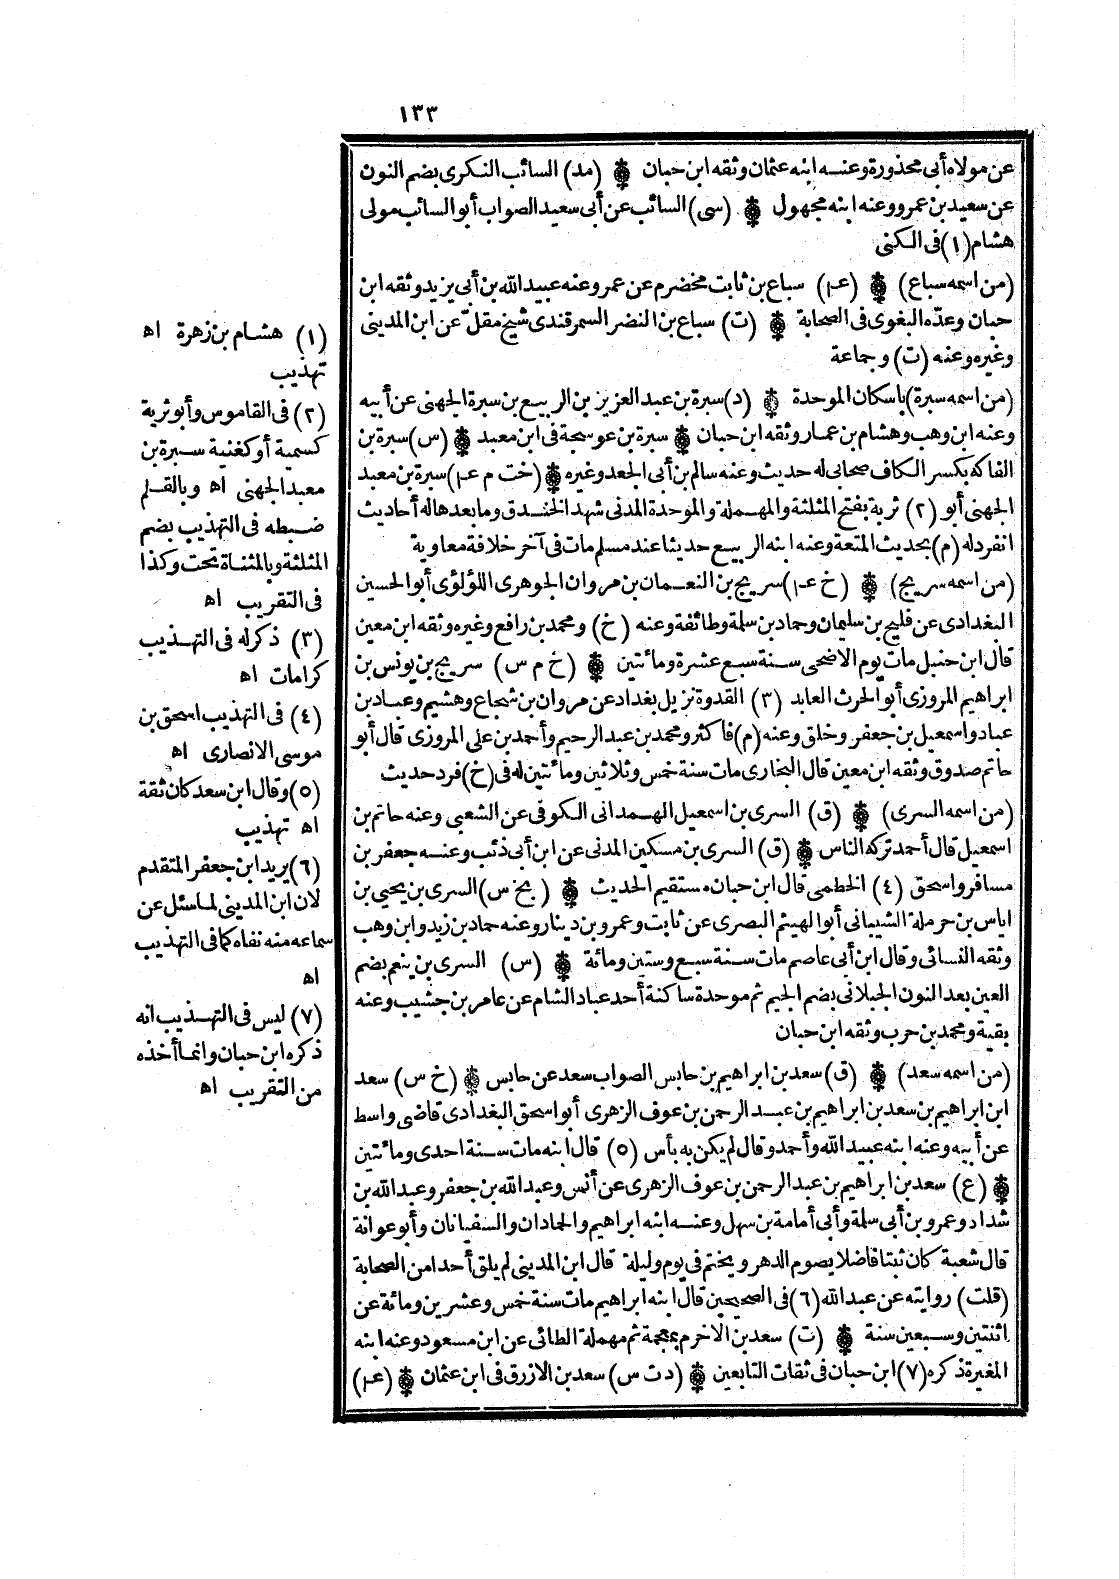 ١٣٣
عن مولاه أبى محذورة وعنه ابنه عثمان وثقه ابن حبان ❁ (مد) السائب النكرى بضم النون
عن سعيد بن عمرو وعنه ابنه مجهول ❁ (سى) السائب عن أبى سعيد الصواب أبو السائب مولى
هشام (١) فى الكنى
(من اسمه سباع) ❁ (عـ) سباع بن ثابت مخضرم عن عمر وعنه عبيد الله بن أبى يزيد وثقه ابن
حبان وعدّه البغوى فى الصحابة ❁ (ت) سباع بن النضر السمرقندى شيخ مقلّ عن ابن المدينى
وغيره وعنه (ت) وجماعة
(من اسمه سبرة) باسكان الموحدة ❁ (د) سبرة بن عبد العزيز بن الربيع بن سبرة الجهنى عن أبيه
وعنه ابن وهب وهشام بن عمار وثقه ابن حبان ❁ سبرة بن عوسجة فى ابن معبد ❁ (س) سبرة بن
الفاكه بكسر الكاف صحابى له حديث وعنه سالم بن أبى الجعد وغيره ❁ (خت م عـ) سبرة بن معبد
الجهنى أبو (٢) ثرية بفتح المثلثة والمهملة والموحدة المدنى شهد الخندق وما بعدها له أحاديث
انفرد له (م) بحديث المتعة وعنه ابنه الربيع حديثا عند مسلم مات فى آخر خلافة معاوية
(من اسمه سريج) ❁ (خ عـ) سريج بن النعمان بن مروان الجوهرى اللؤلؤى أبو الحسين
البغدادى عن فليح بن سليمان وحماد بن سلمة وطائفة وعنه (خ) ومحمد بن رافع وغيره وثقه ابن معين
قال ابن حنبل مات يوم الاضحى سنة سبع عشرة ومائتين ❁ (خ م س) سريج بن يونس بن
ابراهيم المروزى أبو الحرث العابد (٣) القدوة نزيل بغداد عن مروان بن شجاع وهشيم وعباد بن
عباد واسمعيل بن جعفر وخلق وعنه (م) فاكثر ومحمد بن عبد الرحيم وأحمد بن على المروزى قال أبو
حاتم صدوق وثقه ابن معين قال البخارى مات سنة خمس وثلاثين ومائتين له فى (خ) فرد حديث
(من اسمه السرى) ❁ (ق) السرى بن اسمعيل الهمدانى الكوفى عن الشعبى وعنه حاتم بن
اسمعيل قال أحمد تركه الناس ❁ (ق) السرى بن مسكين المدنى عن ابن أبى ذئب وعنه جعفر بن
مسافر واسحق (٤) الخطمى قال ابن حبان مستقيم الحديث ❁ (بخ س) السرى بن يحيى بن
اياس بن حرملة الشيبانى أبو الهيثم البصرى عن ثابت وعمرو بن دينار وعنه حماد بن زيد وابن وهب
وثقه النسائى وقال ابن أبى عاصم مات سنة سبع وستين ومائة ❁ (س) السرى بن ينعم بضم
العين بعد النون الجبلانى بضم الجيم ثم موحدة ساكنة أحد عباد الشام عن عامر بن جشيب وعنه
بقية ومحمد بن حرب وثقه ابن حبان
(من اسمه سعد) ❁ (ق) سعد بن ابراهيم بن حابس الصواب سعد عن حابس ❁ (خ س) سعد
ابن ابراهيم بن سعد بن ابراهيم بن عبد الرحمن بن عوف الزهرى أبو اسحق البغدادى قاضى واسط
عن أبيه وعنه ابنه عبيد الله وأحمد وقال لم يكن به بأس (٥) قال ابنه مات سنة احدى ومائتين
❁ (ع) سعد بن ابراهيم بن عبد الرحمن بن عوف الزهرى عن أنس وعبد الله بن جعفر وعبد الله بن
شداد وعمرو بن أبى سلمة وأبى أمامة بن سهل وعنه ابنه ابراهيم والحمادان والسفيانان وأبو عوانة
قال شعبة كان ثبتا فاضلا يصوم الدهر ويختم فى يوم وليلة قال ابن المدينى لم يلق أحدا من الصحابة
(قلت) روايته عن عبد الله (٦) فى الصحيحين قال ابنه ابراهيم مات سنة خمس وعشرين ومائة عن
اثنتين وسبعين سنة ❁ (ت) سعد بن الاخرم بمعجمة ثم مهملة الطائى عن ابن مسعود وعنه ابنه
المغيرة ذكره (٧) ابن حبان فى ثقات التابعين ❁ (د ت س) سعد بن الازرق فى ابن عثمان ❁ (عـ)
(١) هشام بن زهرة اه
تهذيب
(٢) فى القاموس وأبو ثرية
كسمية أو كغنية سبرة بن
معبد الجهنى اه وبالقلم
ضبطه فى التهذيب بضم
المثلثة وبالمثناة تحت وكذا
فى التقريب اه
(٣) ذكر له فى التهذيب
كرامات اه
(٤) فى التهذيب اسحق بن
موسى الانصارى اه
(٥) وقال ابن سعد كان ثقة
اه تهذيب
(٦) يريد ابن جعفر المتقدم
لان ابن المدينى لما سئل عن
سماعه منه نفاه كما فى التهذيب
اه
(٧) ليس فى التهذيب انه
ذكره ابن حبان وانما أخذه
من التقريب اه